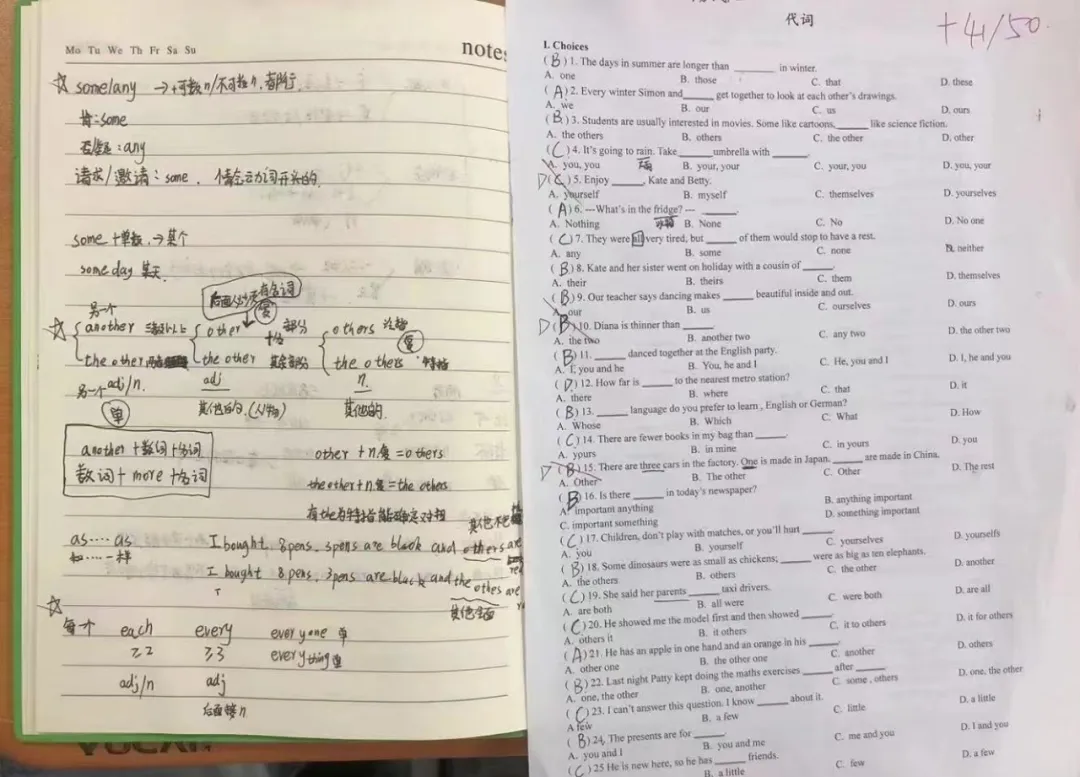 Mo Tu We Th Fr Sa Su
notes
some/any → +可数n/不可数n.都行.
肯:some
否/疑:any
请求/邀请:some. 情态动词开头的.
some +单数,→某个
some day 某天
后面必须要有名词
复
另一个
another 三者及以上
other 部分
others 泛指
复
the other 两者
the other 其余部分
the others 特指
另一个 adj/n.
adj
n.
单
其他的.(人/物)
其他的.
another +数词+名词
数词+ more +名词
other +n.复 =others
the other+n.复=the others
有the为特指能确定对相
as....as
和....一样
I bought 8pens, 3pens are black and others are
I bought 8pens, 3pens are black and the othes are
其他全面
每一个 each every everyone 单
≥2 ≥3 everything 单
adj/n adj
后面接n
代词
+41/50.
I. Choices
(B) 1. The days in summer are longer than ______ in winter.
A. one B. those C. that D. these
(A) 2. Every winter Simon and______ get together to look at each other's drawings.
A. we B. our C. us D. ours
(B) 3. Students are usually interested in movies. Some like cartoons,______ like science fiction.
A. the others B. others C. the other D. other
(C) 4. It's going to rain. Take ______ umbrella with ______.
A. you, you B. your, your C. your, you D. you, your
D(C) 5. Enjoy ______, Kate and Betty.
A. yourself B. myself C. themselves D. yourselves
(A) 6. ---What's in the fridge? --- ______.
A. Nothing 冰箱 B. None C. No D. No one
(C) 7. They were all very tired, but ______ of them would stop to have a rest.
A. any B. some C. none D. neither
(B) 8. Kate and her sister went on holiday with a cousin of ______.
A. their B. theirs C. them D. themselves
(B) 9. Our teacher says dancing makes ______ beautiful inside and out.
A. our B. us C. ourselves D. ours
D(B) 10. Diana is thinner than ______.
A. the two B. another two C. any two D. the other two
(B) 11. ______ danced together at the English party.
A. I, you and he B. You, he and I C. He, you and I D. I, he and you
(D) 12. How far is ______ to the nearest metro station?
A. there B. where C. that D. it
(B) 13. ______ language do you prefer to learn, English or German?
A. Whose B. Which C. What D. How
(C) 14. There are fewer books in my bag than ______.
A. yours B. in mine C. in yours D. you
D(B) 15. There are three cars in the factory. One is made in Japan, ______ are made in China.
A. Other B. The other C. Other D. The rest
(B) 16. Is there ______ in today's newspaper?
A. important anything B. anything important
C. important something D. something important
(C) 17. Children, don't play with matches, or you'll hurt ______.
A. you B. yourself C. yourselves D. yourselfs
(B) 18. Some dinosaurs were as small as chickens; ______ were as big as ten elephants.
A. the others B. others C. the other D. another
(C) 19. She said her parents ______ taxi drivers.
A. are both B. all were C. were both D. are all
(C) 20. He showed me the model first and then showed ______.
A. others it B. it others C. it to others D. it for others
(A) 21. He has an apple in one hand and an orange in his ______.
A. other one B. the other one C. another D. others
(B) 22. Last night Patty kept doing the maths exercises ______ after ______.
A. one, the other B. one, another C. some, others D. one, the other
(C) 23. I can't answer this question. I know ______ about it.
A few B. a few C. little D. a little
(B) 24. The presents are for ______.
A. you and I B. you and me C. me and you D. I and you
(C) 25 He is new here, so he has ______ friends.
B. a little C. few D. a few